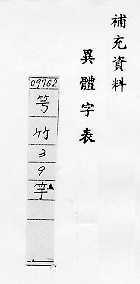 補充資料
異體字表
09762
竹
3
9